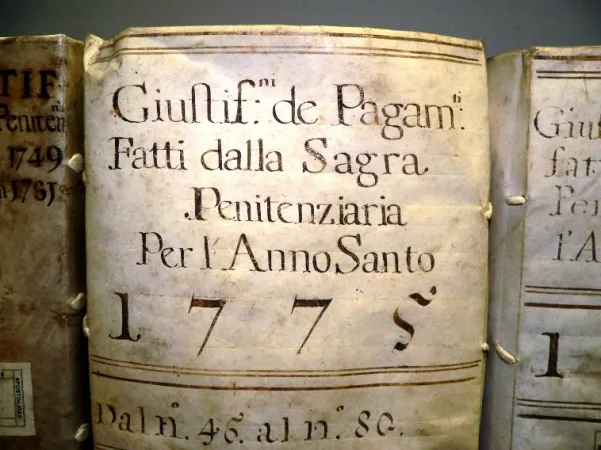 TIF
Peniten
1749
1761
Giuſtif:ni de Pagamti:
Fatti dalla Sagra
Penitenziaria
Per l'Anno Santo
1775
Dal n.° 46. al n.° 80.
Giuſ
fatt
Pen
l'A
1